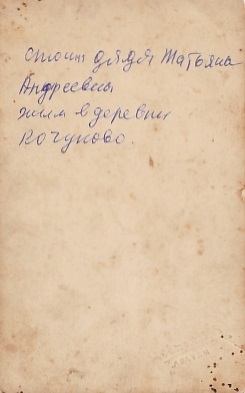 стоит дядя Татьяна
Андреевны
жил в деревни
Кочуково.